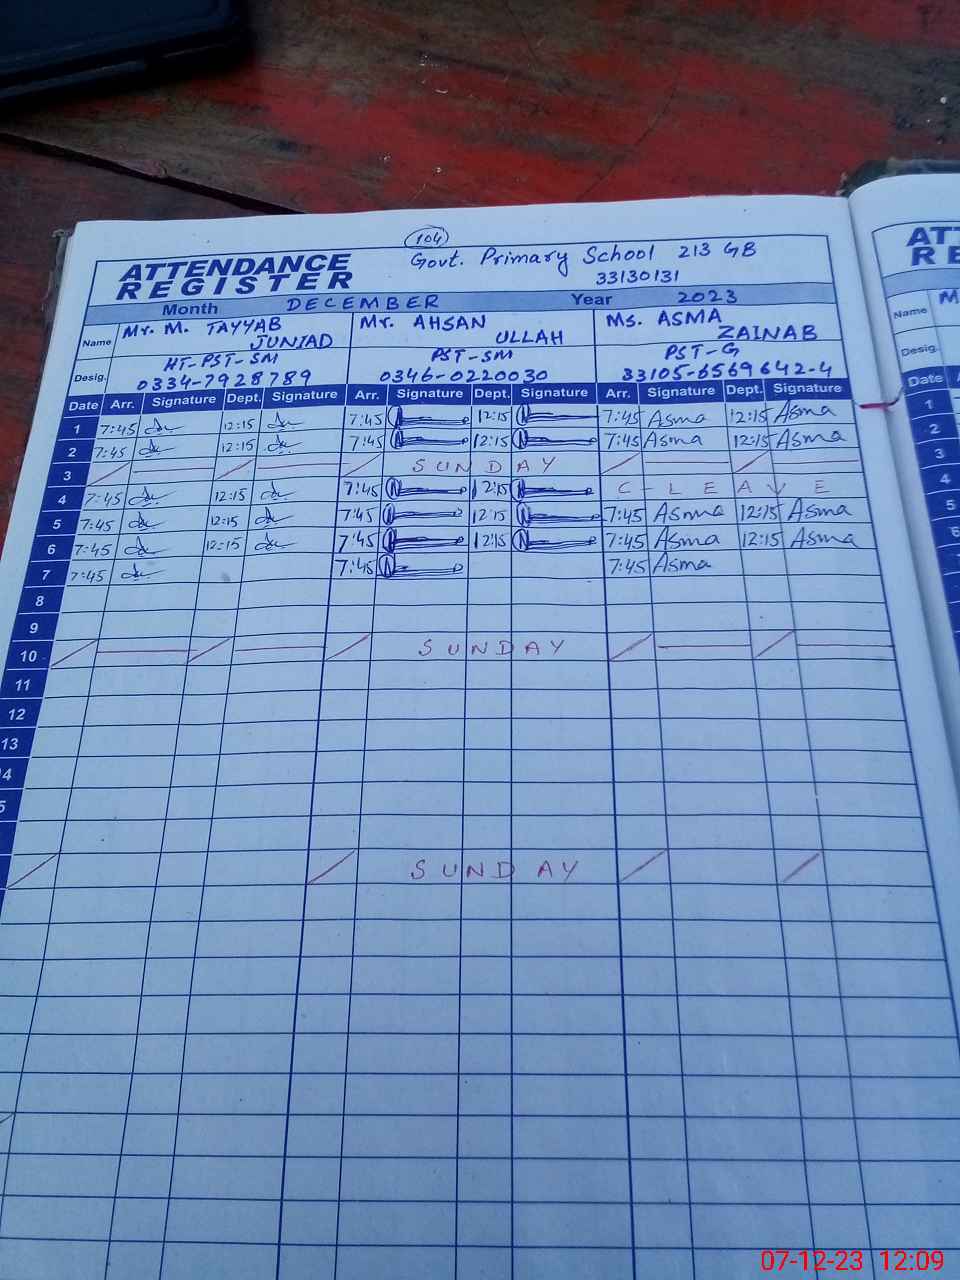 104
ATTENDANCE REGISTER
Govt. Primary School 213 GB
33130131
Month DECEMBER Year 2023
Name Mr. M. TAYYAB JUNIAD Mr. AHSAN ULLAH Ms. ASMA ZAINAB
Desig. HT-PST-SM PST-SM PST-G
0334-7928789 0346-0220030 33105-6569642-4
Date Arr. Signature Dept. Signature Arr. Signature Dept. Signature Arr. Signature Dept. Signature
1 7:45 12:15 7:45 12:15 7:45 Asma 12:15 Asma
2 7:45 12:15 7:45 12:15 7:45 Asma 12:15 Asma
3 SUNDAY
4 7:45 12:15 7:45 12:15 C-LEAVE
5 7:45 12:15 7:45 12:15 7:45 Asma 12:15 Asma
6 7:45 12:15 7:45 12:15 7:45 Asma 12:15 Asma
7 7:45 7:45 7:45 Asma
8
9
10 SUNDAY
11
12
13
4
5
SUNDAY
AT
RE
Name M
Desig.
Date A
1
2
3
4
5
6
7
8
9
10
11
12
07-12-23 12:09